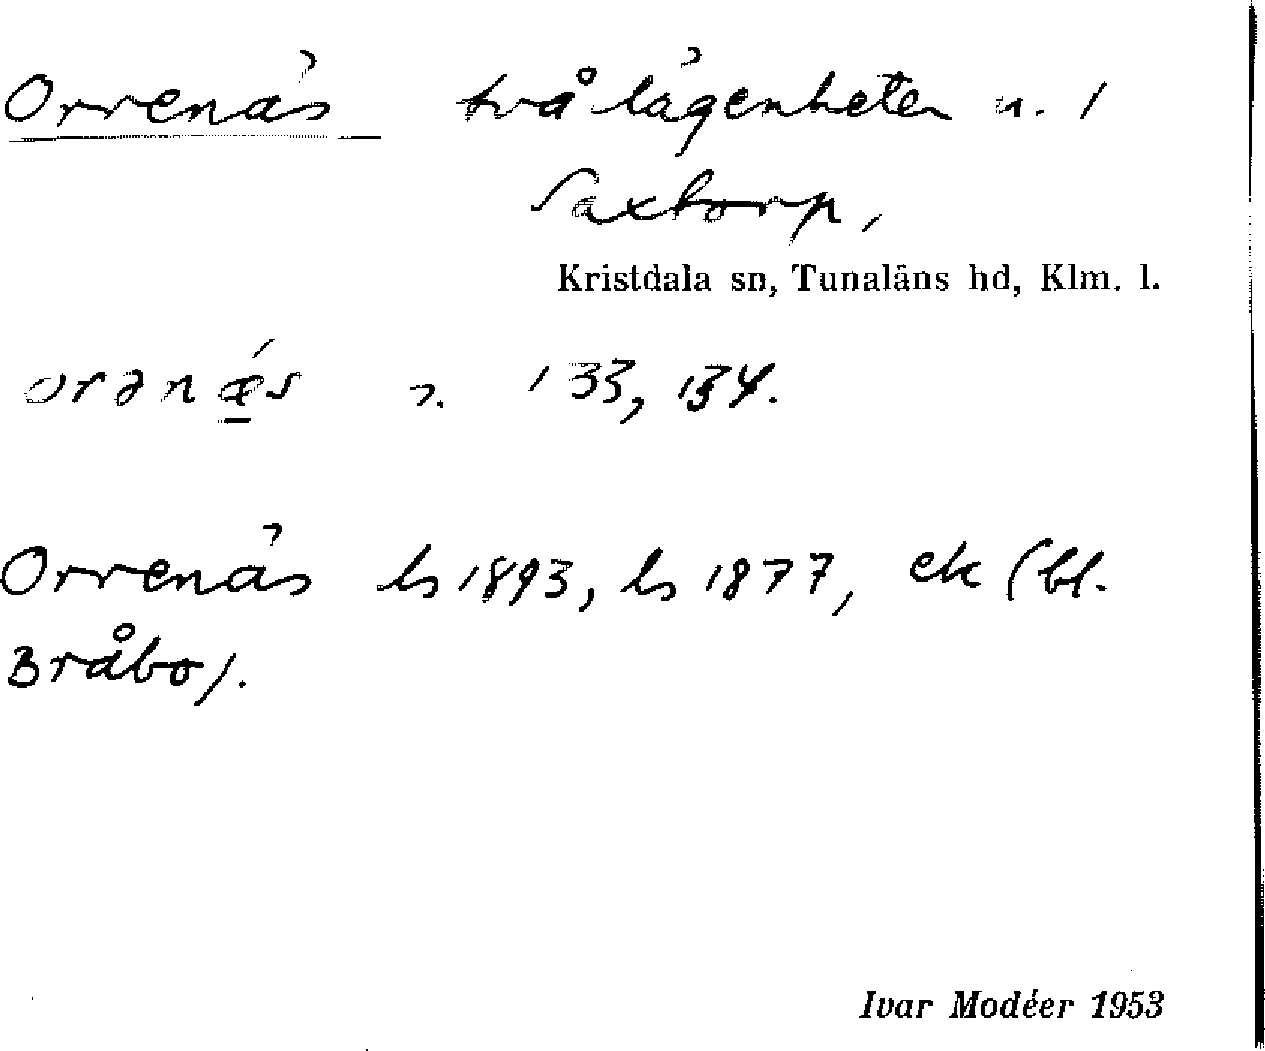 Orrenäs två lägenheter u. 1
Saxtorp,
Kristdala sn, Tunaläns hd, Klm. l.
orənǽs 2. 133, 134.
Orrenäs hs 1893, hs 1877, ek (bl.
Bråbo).
Ivar Modéer 1953